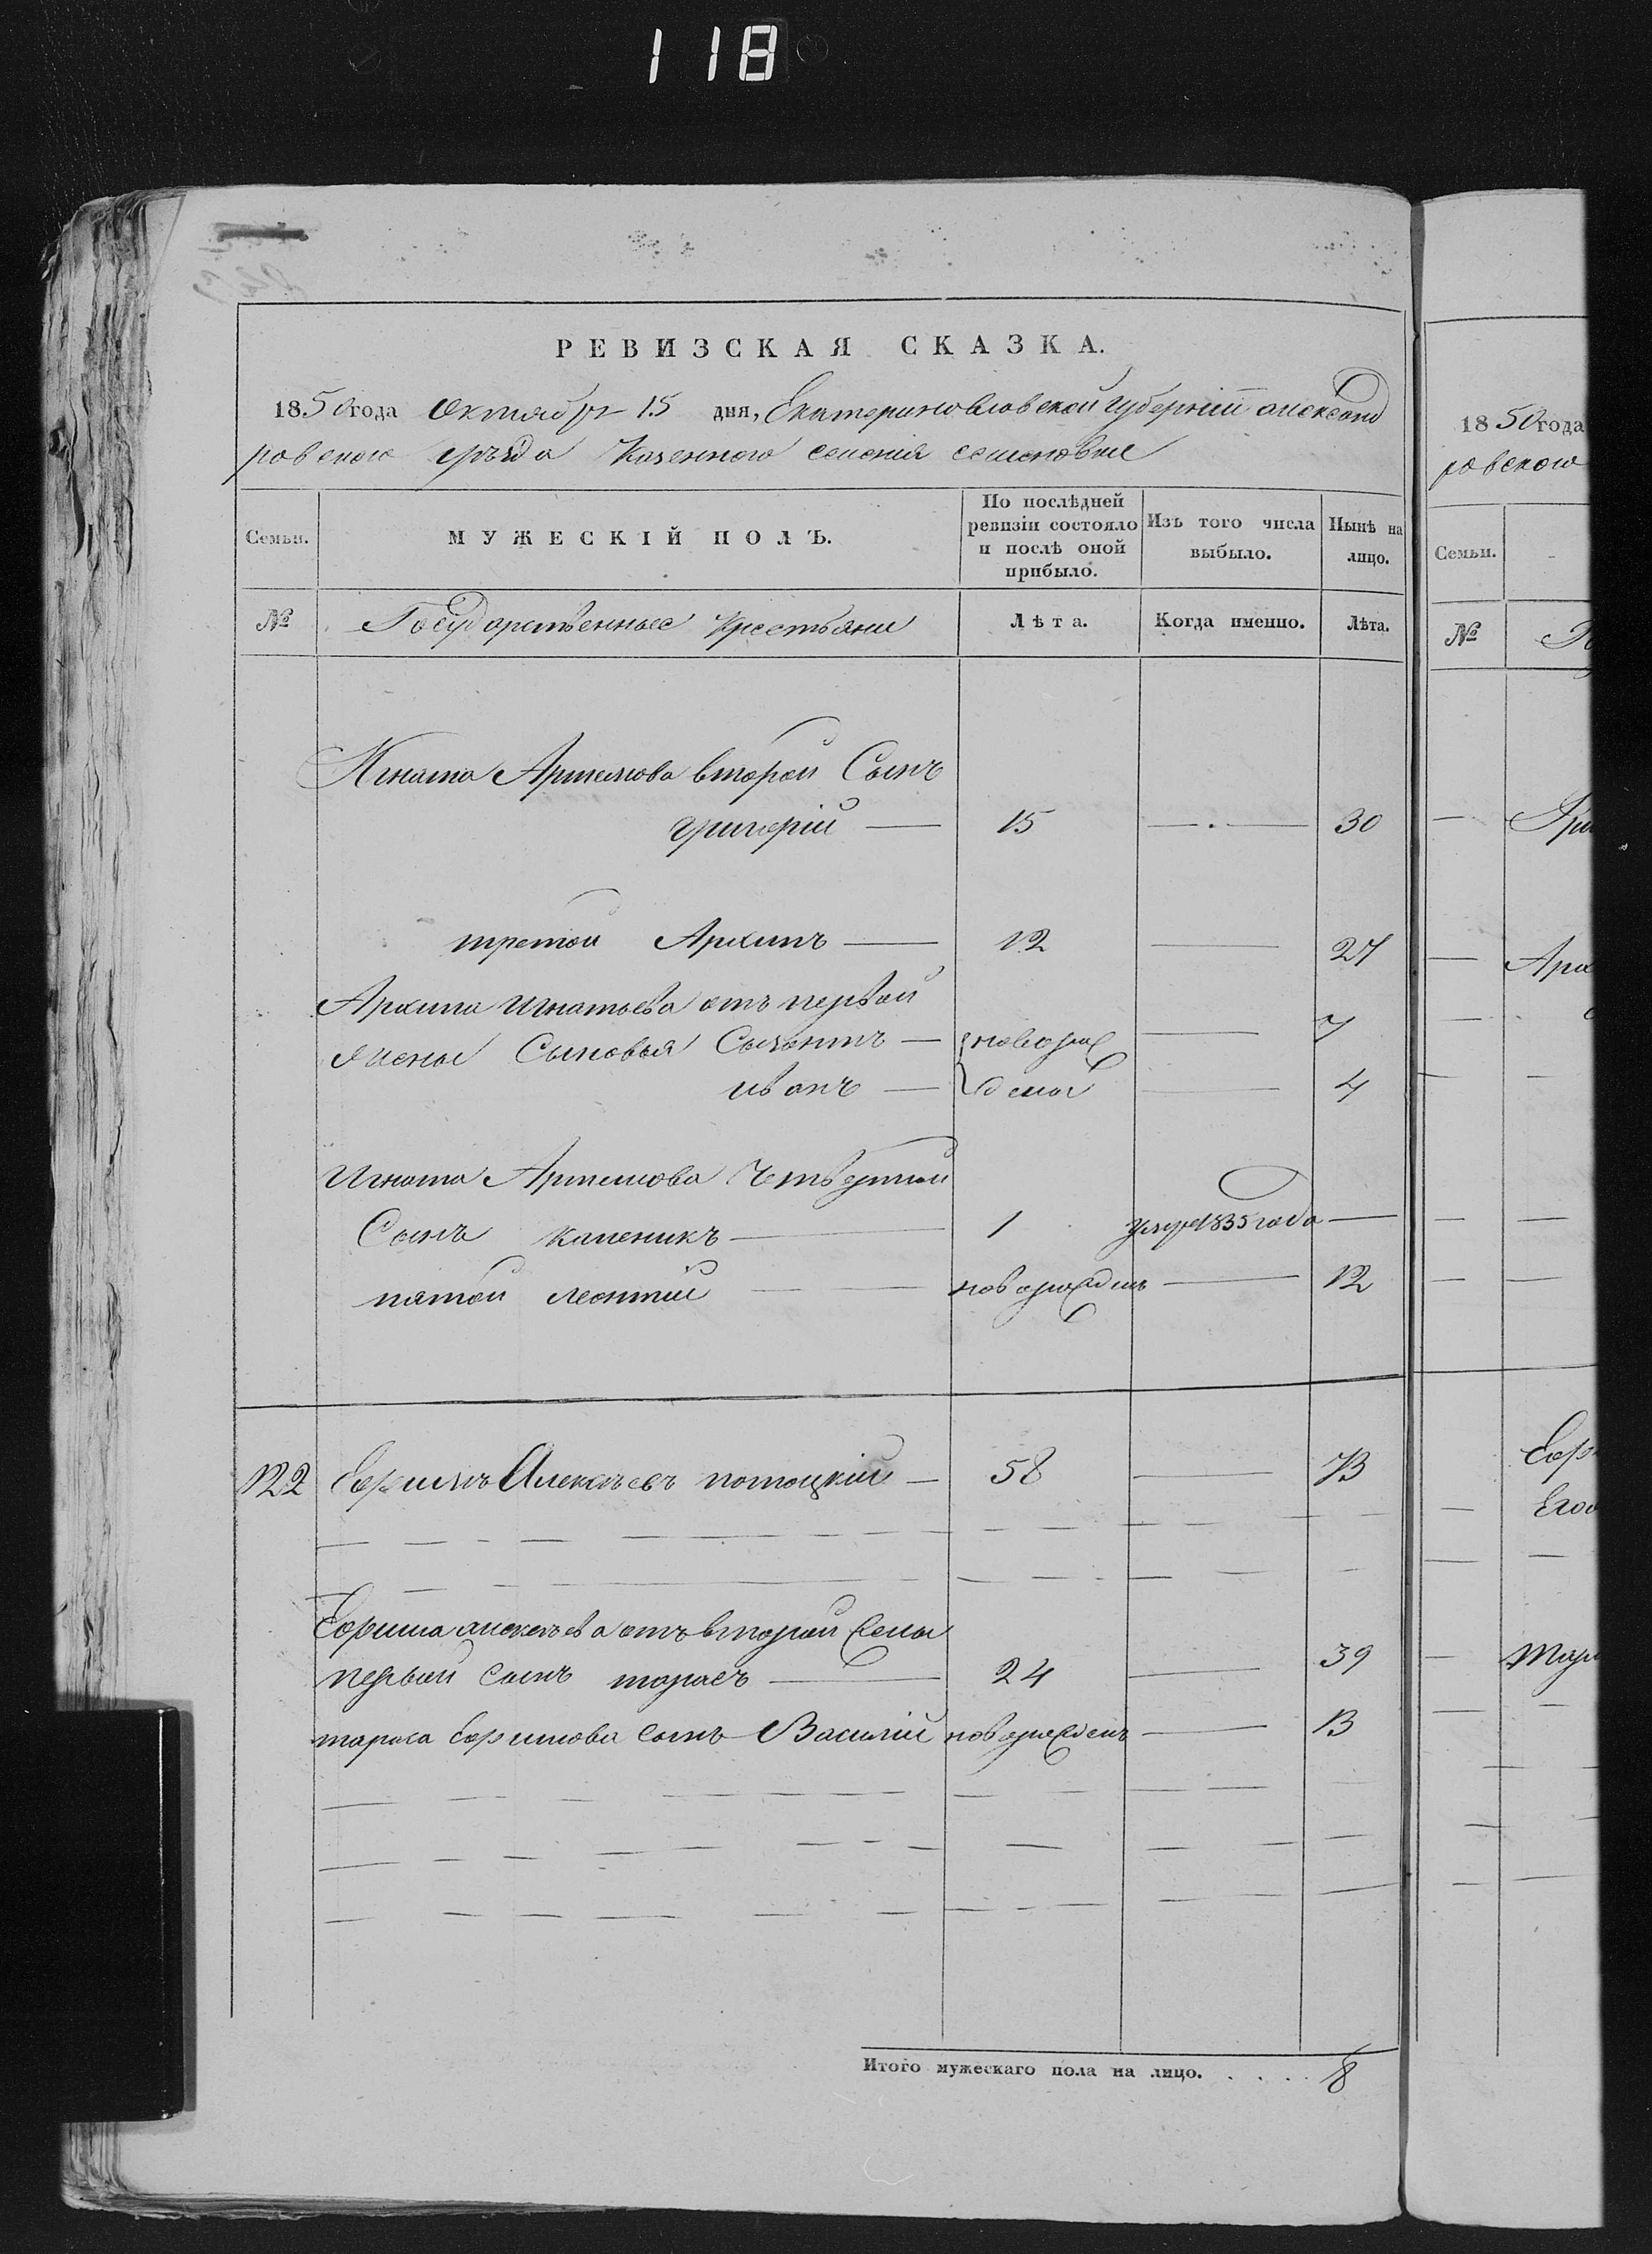 118
РЕВИЗСКАЯ СКАЗКА.
1850 года Октября 15 дня, Екатеринославской губерніи александ
ровского уѣзда казенного селенія семеновки
Семьи.
МУЖЕСКІЙ ПОЛЪ.
По послѣдней ревизіи состояло и послѣ оной прибыло.
Изъ того числа выбыло.
Нынѣ на лицо.
№ Государственные крестьяне Лѣта. Когда именно. Лѣта.
Игната Артемова второй Сынъ
григорій — 15 — 30
третой Архипъ — 12 — 27
Архипа игнатьева отъ первой
жены Сыновья Созонтъ — новорож — 7
иванъ — дены — 4
игната Артемова Четвертой
Сынъ каленикъ — 1 умре 1835 года —
пятой леонтій — новорожденъ — 12
122 Ефимъ Алексѣевъ потоцкій — 58 — 73
Ефима алексѣева отъ второй жены
первой сынъ тарасъ — 24 — 39
тараса Ефимова сынъ Василій новорожденъ — 13
Итого мужескаго пола на лицо. . . . . 8
1850 года
ровского
Семьи.
№